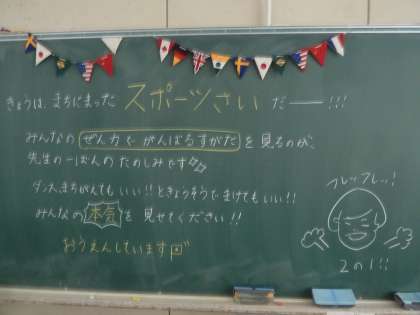 きょうは、まちにまった スポーツさい だーー!!!
みんなの ぜん力で がんばるすがた を見るのが、
先生の一ばんのたのしみです
ダンス、まちがえてもいい!!ときょうそうで、まけてもいい!!
みんなの 本気 を見せてください!!
おうえんしています
フレッフレッ!
2の1!!